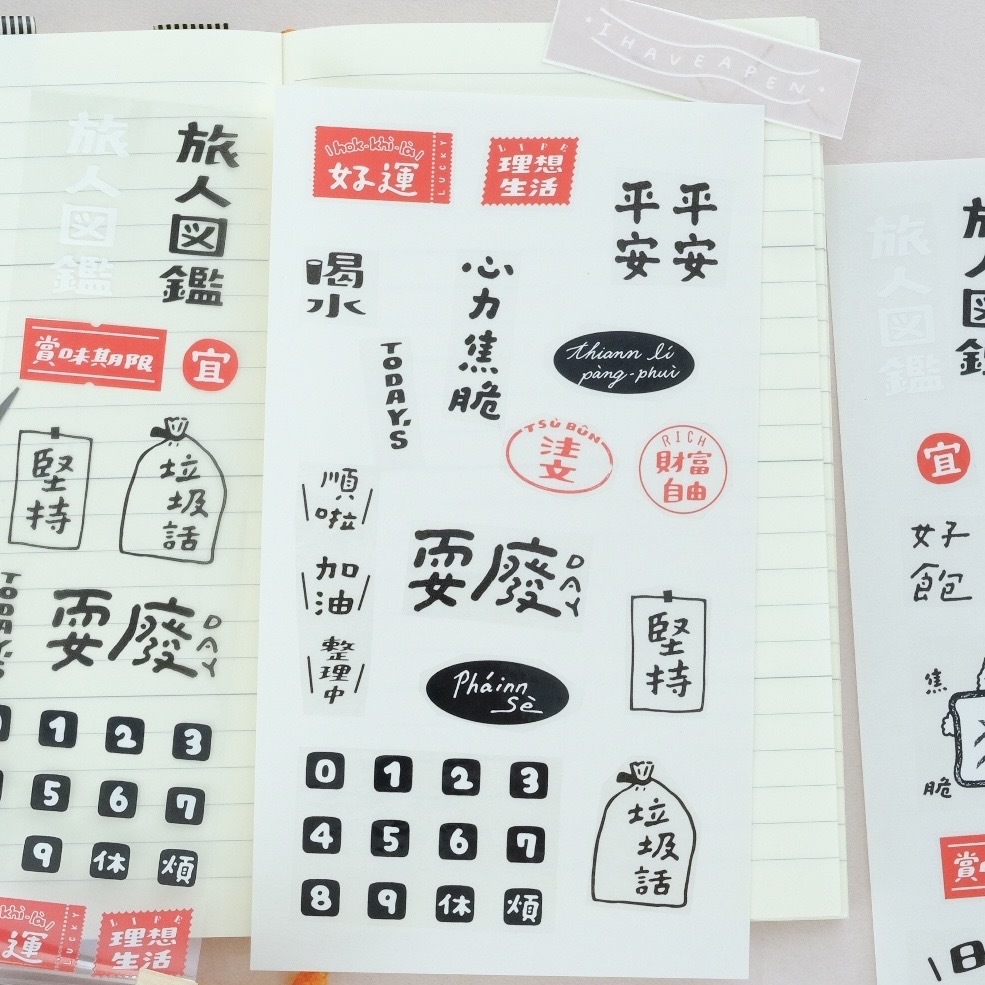 IHAVEAPEN
旅人図鑑
旅人図鑑
賞味期限
宜
堅持
垃圾話
TODAY'S
耍廢
DAY
1 2 3
5 6 7
9 休 煩
khì-là
運
LUCKY
LIFE
理想
生活
hok-khì-là
好運
LUCKY
LIFE
理想
生活
平安
平安
喝水
心力焦脆
TODAY'S
thiann lí
pàng-phuì
TSÙ BÛN
注文
RICH
財富
自由
順啦
加油
整理中
耍廢
DAY
堅持
Pháinn
sè
0 1 2 3
4 5 6 7
8 9 休 煩
垃圾話
旅人図鑑
宜
好飽
焦
脆
賞